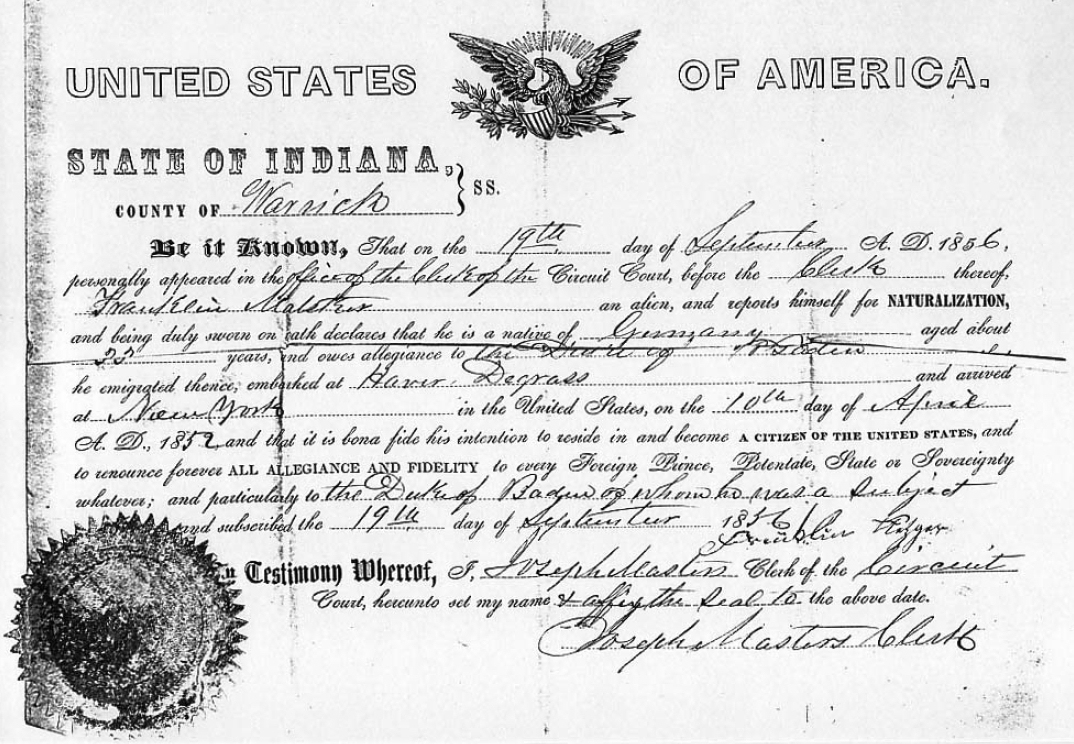 UNITED STATES OF AMERICA.
STATE OF INDIANA,
COUNTY OF Warrick } SS.
Be it Known, That on the 19th day of September A. D. 1856,
personally appeared in the office of the Clerk of the Circuit Court, before the Clerk thereof,
Franklin an alien, and reports himself for NATURALIZATION,
and being duly sworn on oath declares that he is a native of Germany aged about
23 years, and owes allegiance to the Duke of Baden
he emigrated thence, embarked at Havir Degrass and arrived
at New York in the United States, on the 10th day of April
A. D., 1852 and that it is bona fide his intention to reside in and become A CITIZEN OF THE UNITED STATES, and
to renounce forever ALL ALLEGIANCE AND FIDELITY to every Foreign Prince, Potentate, State or Sovereignty
whatever; and particularly to the Duke of Baden of whom he was a subject
and subscribed the 19th day of September 1856
Franklin
In Testimony Whereof, I, Joseph Masters Clerk of the Circuit
Court, hereunto set my name & affix the seal to the above date.
Joseph Masters Clerk